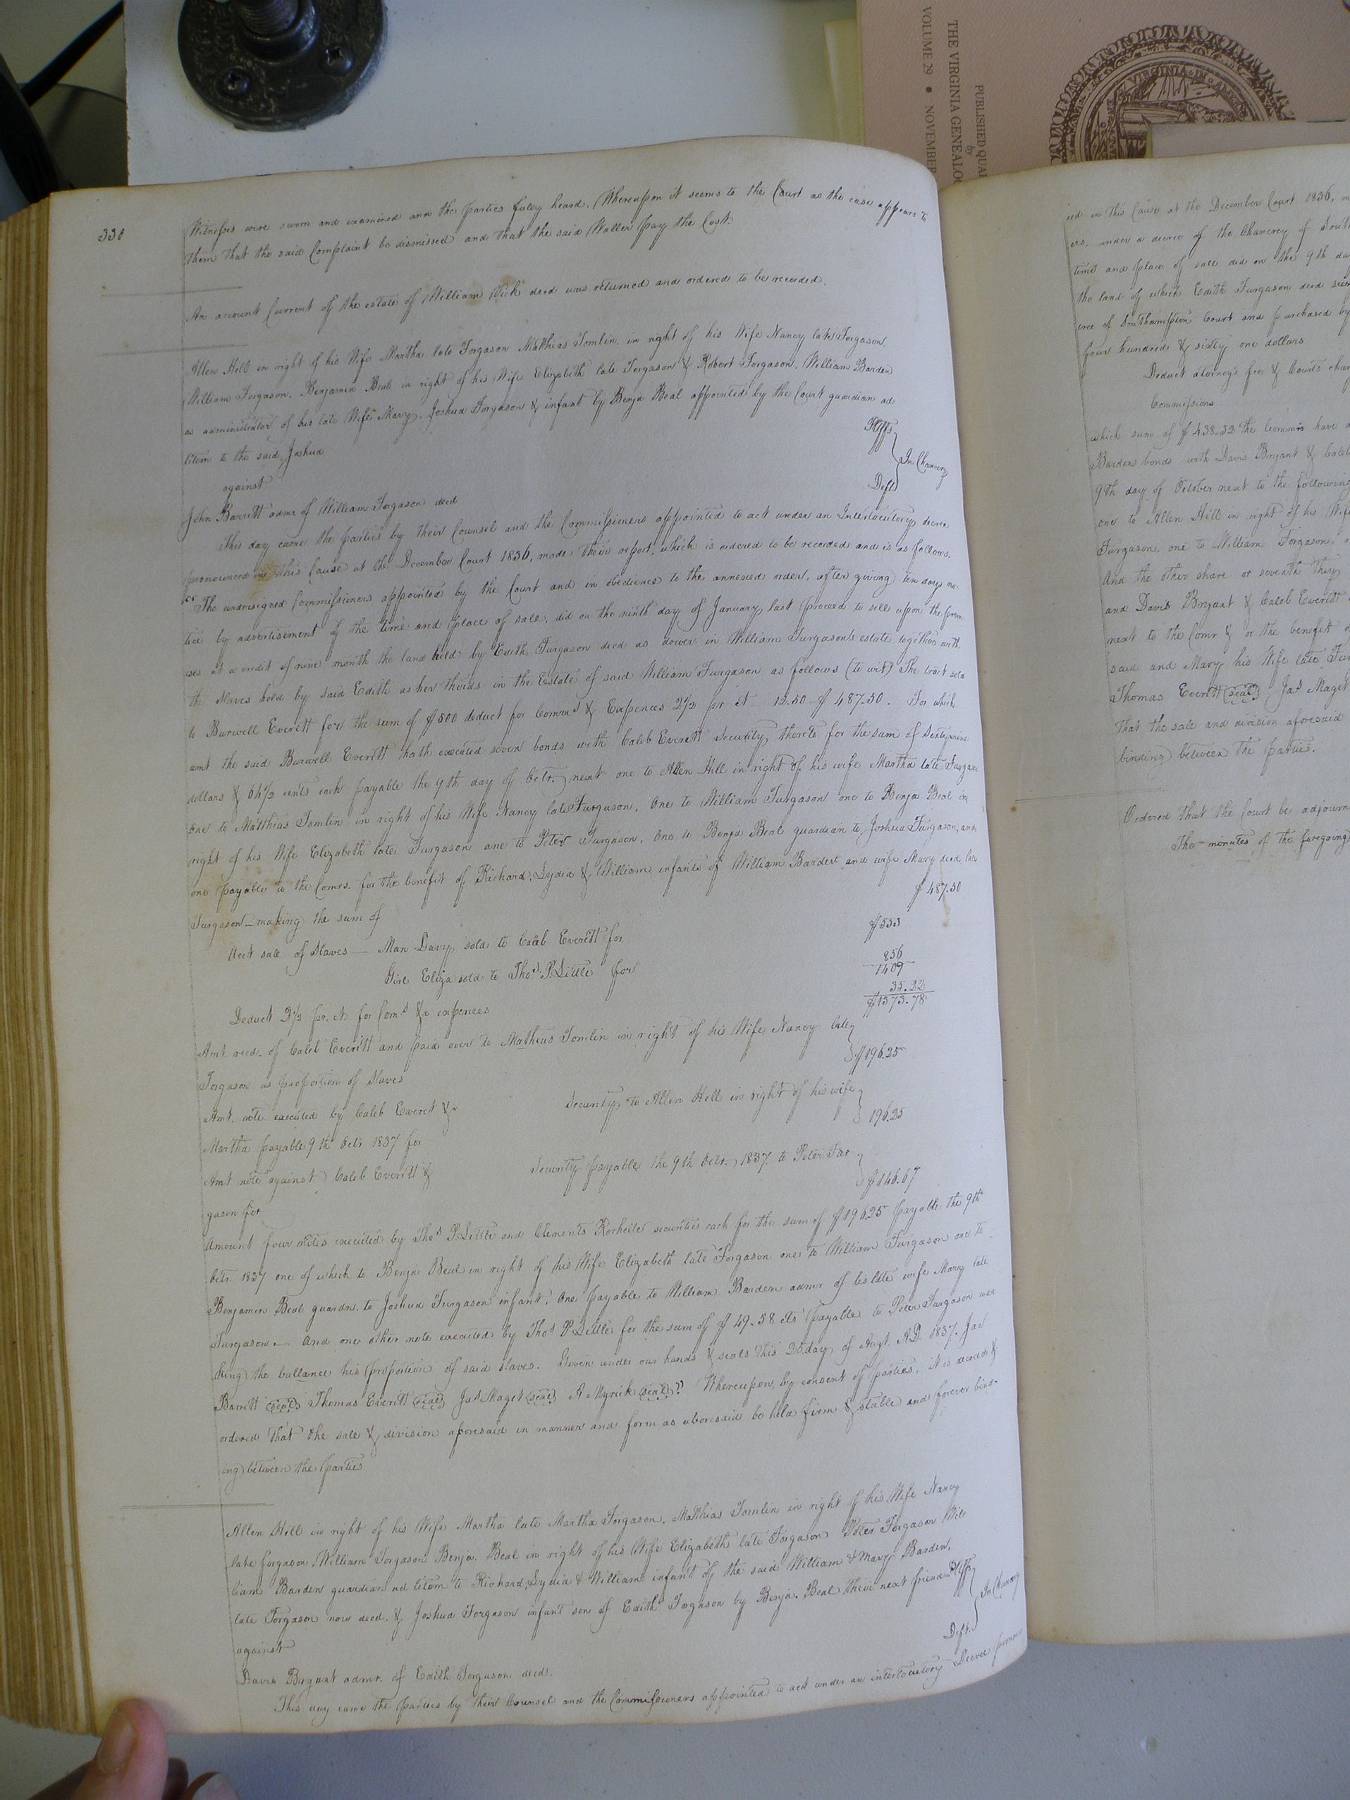 PUBLISHED QUA
by
THE VIRGINIA GENEALOG
VOLUME 29 • NOVEMBER
VIRGINIA
338
Witnesses were sworn and examined and the parties fuley heard. Whereupon it seems to the Court as the case appears to
them that the said Complaint be dismissed and that the said Waller pay the Cost.
An account Current of the estate of William Vick decd was returned and ordered to be recorded.
Allen Hill in right of his Wife Martha late Forgason Matthias Tomlin in right of his Wife Nancy late Forgason
William Forgason, Benjamin Beal in right of his Wife Elizabeth late Forgason & Robert Forgason, William Barden
as administrator of his late Wife Mary, Joshua Forgason & infant by Benja Beal appointed by the Court guardian ad
litem to the said Joshua
Pltffs
against
In Chancery
Defts
John Barrett admr of William Forgason decd
This day came the parties by their Counsel and the Commissioners appointed to act under an Interlocutory decree
pronounced in this Cause at the December Court 1836, made their report, which is ordered to be recorded and is as follows.
The undersigned Commissioners appointed by the Court and in obedience to the annexed order, after giving ten days no-
tice by advertisement of the time and place of sale, did on the ninth day of January last proceed to sell upon the prem
ises at a credit of nine month the land held by Edith Furgason decd as dower in William Furgason's estate together with
the slaves held by said Edith as her thirds in the Estate of said William Furgason as follows (to wit) The tract sold
to Burwell Everitt for the sum of $500 deduct for Comms & Expences 2½ pr ct 12.50 $487.50. For which
amt the said Burwell Everitt hath executed seven bonds with Caleb Everett Security thereto for the sum of Sixty nine
dollars & 64½ cents each payable the 9th day of Octr. next one to Allen Hill in right of his wife Martha late Furgason
one to Matthias Tomlin in right of his Wife Nancy late Furguson, One to William Furgason one to Benja Beal in
right of his Wife Elizabeth late Furgason one to Peter Furgason, One to Benja Beal guardian to Joshua Furgason, and
one payable to the Comrs. for the benefit of Richard, Lydia & William infants of William Barden and wife Mary decd late
Furgason—making the sum of $487.50
Nett sale of Slaves — Man Davy sold to Caleb Everett for $553
Girl Eliza sold to Thos. P. Little for 856
1409
Deduct 2½ pr. ct. for Coms & expences 35.22
$1373.78
Amt recd. of Caleb Everitt and paid over to Matthias Tomlin in right of his Wife Nancy late
Forgason as proportion of Slaves $196.25
Amt. note executed by Caleb Everet & Security, to Allen Hill in right of his wife
Martha payable 9th Octr 1837 for 196.25
Amt note against Caleb Everitt & Security payable the 9th Octr. 1837 to Peter Fur
gason for $146.67
Amount four notes executed by Thos P. Little and Clements Rochelle securities each for the sum of $196.25 payable the 9th
Octr. 1837 one of which to Benja Beal in right of his Wife Elizabeth late Forgason one to William Furgason one to
Benjamin Beal guardn. to Joshua Furgason infant, One payable to William Barden admr of his late wife Mary late
Furgason— And one other note executed by Thos P. Little for the sum of $49.58 cts payable to Peter Furgason ma
king the ballance his proportion of said slaves. Given under our hands & seals this day of Augt. A.D. 1837. Jas
Barritt (seal) Thomas Everitt (seal) Jas Maget (seal) A Myrick (seal) Whereupon by consent of parties, it is decreed &
ordered that the sale & division aforesaid in manner and form as aboresaid be held firm & stable and forever bind-
ing between the parties
Allen Hill in right of his Wife Martha late Martha Forgason, Matthias Tomlin in right of his Wife Nancy
late forgason, William Forgason Benja. Beal in right of his Wife Elizabeth late Forgason Peter Forgason Will
iam Barden guardian ad litem to Richard, Lydia & William infant of the said William & Mary Barden,
late Forgason now decd. & Joshua Forgason infant son of Edith Forgason by Benja. Beal their next friend Pltffs
against
In Chancery
Deft.
Davis Bryant admr. of Edith Forguson decd.
This day came the parties by their Counsel and the Commissioners appointed to act under an interlocutory Decree pronoun
ed in this Cause at the December Court 1836,
ers, under a decree of the Chancery of South
time and place of sale did on the 9th da
the land of which Edith Furgason decd
ence of Southampton Court and purchased by
four hundred & sixty one dollars
Deduct attorney's fee & Courts char
Commissions
which sum of $438.32 the Commrs have
Barden bonds with Davis Bryant & Caleb
9th day of October next to the following
one to Allen Hill in right of his Wife
Furgason, one to William Forgason,
And the other share or seventh they
and Davis Bryant & Caleb Everitt
next to the Comr & for the benefit of
said and Mary his Wife late Fur
Thomas Everitt (seal) Jas Maget
That the sale and division aforesaid
binding between the parties.
Ordered that the Court be adjourn
The minutes of the foregoing